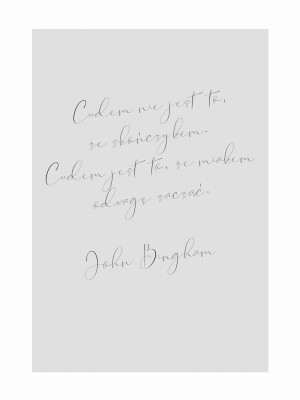 Cudem nie jest to,
że skończyłem.
Cudem jest to, że miałem
odwagę zacząć.
John Bingham